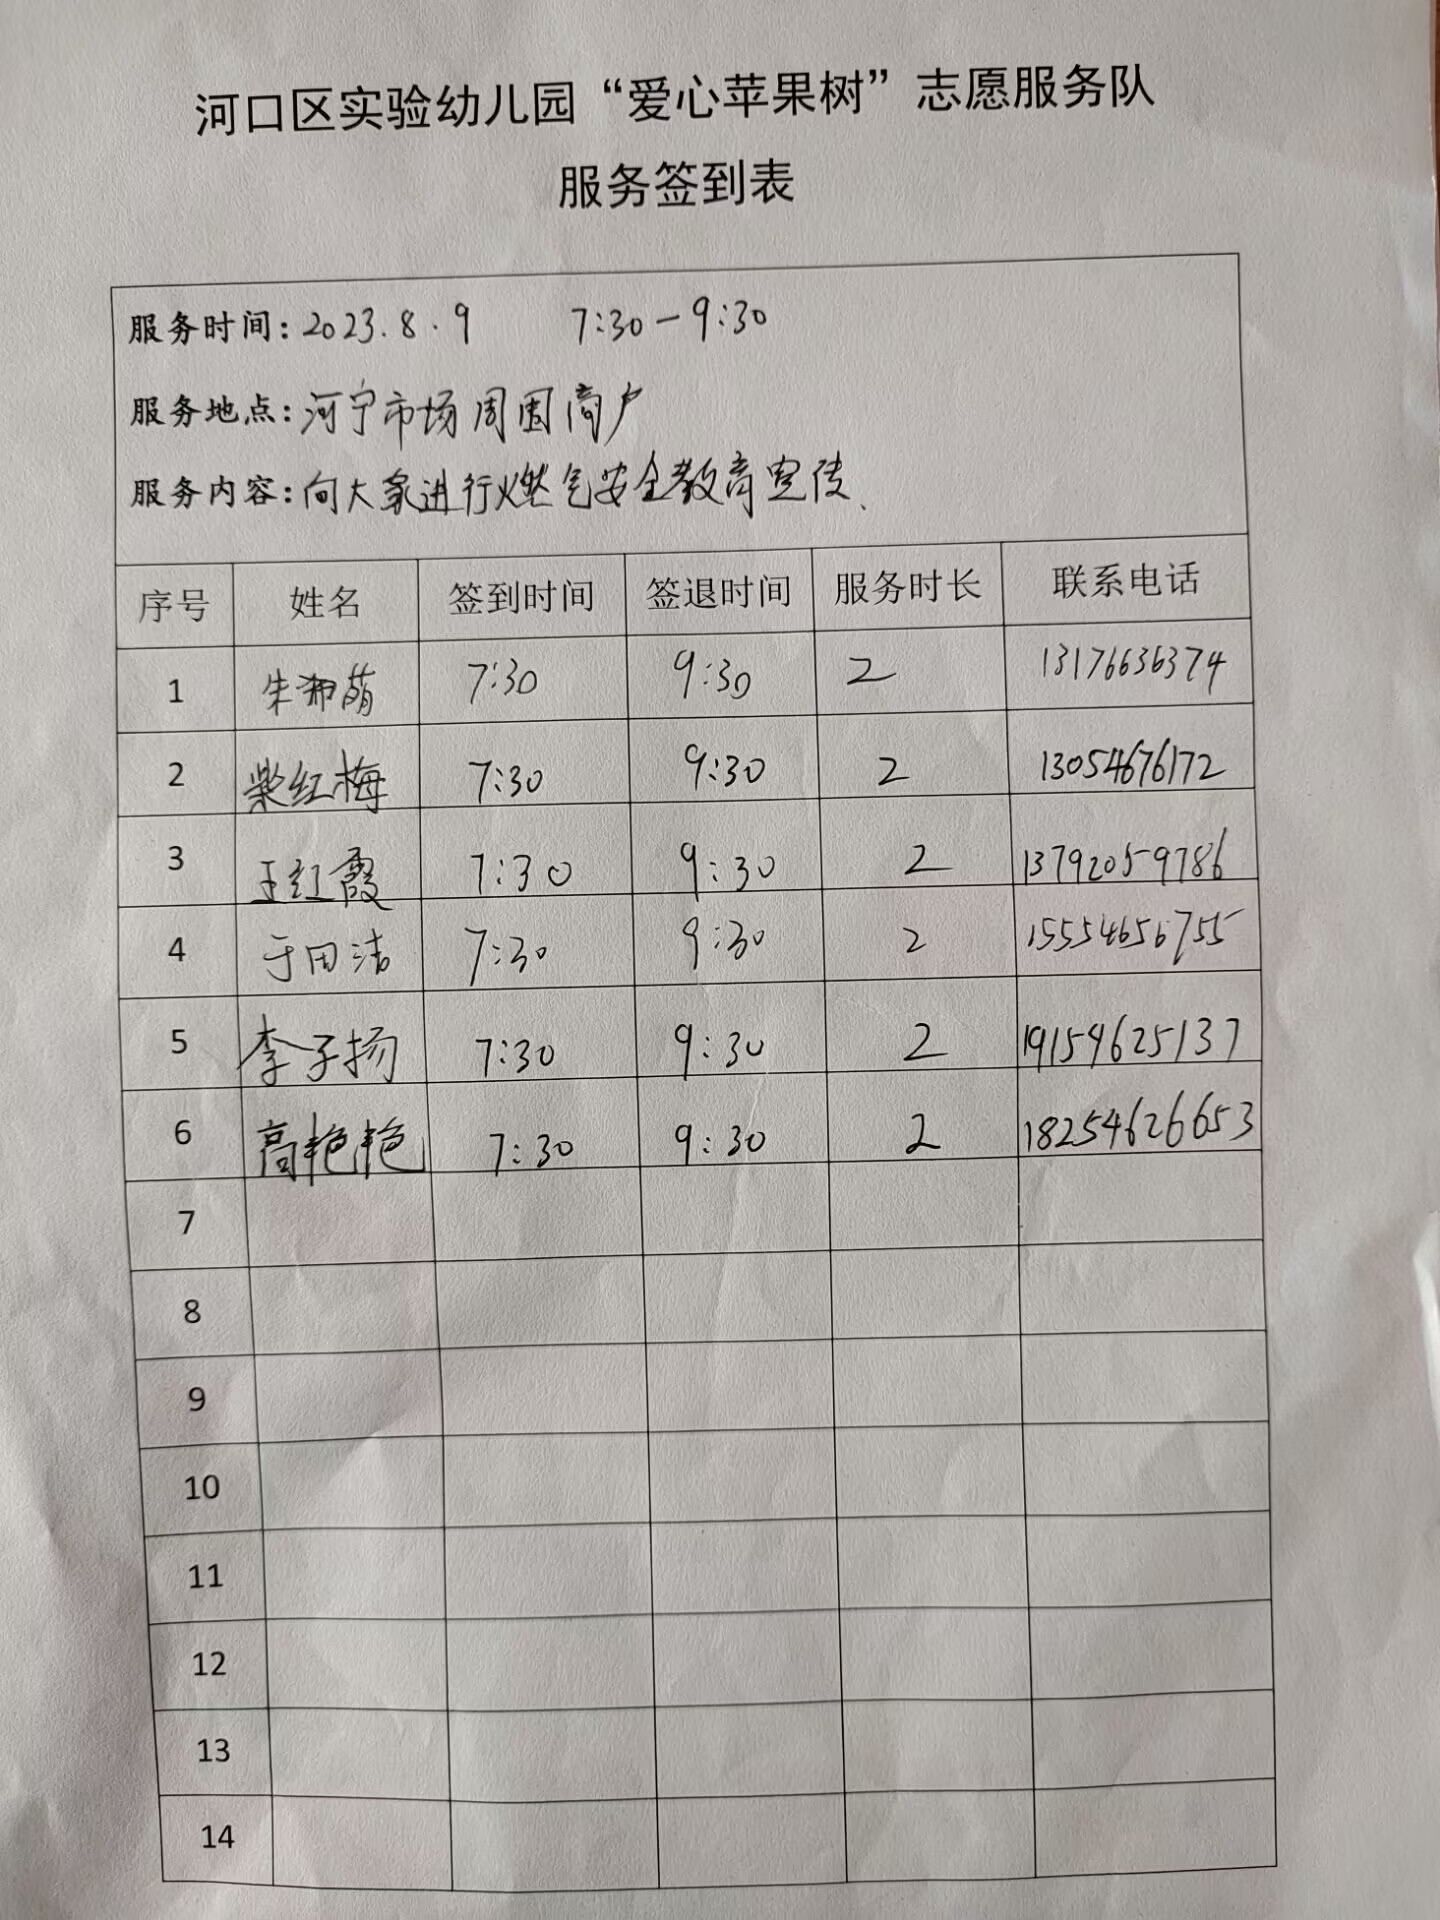 河口区实验幼儿园“爱心苹果树”志愿服务队
服务签到表
服务时间: 2023.8.9 7:30-9:30
服务地点: 河宁市场周围商户
服务内容: 向大家进行燃气安全教育宣传、
序号 姓名 签到时间 签退时间 服务时长 联系电话
1 朱 萌 7:30 9:30 2 13176636374
2 柴红梅 7:30 9:30 2 13054676172
3 王红霞 7:30 9:30 2 13792059786
4 于田洁 7:30 9:30 2 15554656755
5 李子扬 7:30 9:30 2 19154625137
6 高艳艳 7:30 9:30 2 18254626653
7
8
9
10
11
12
13
14